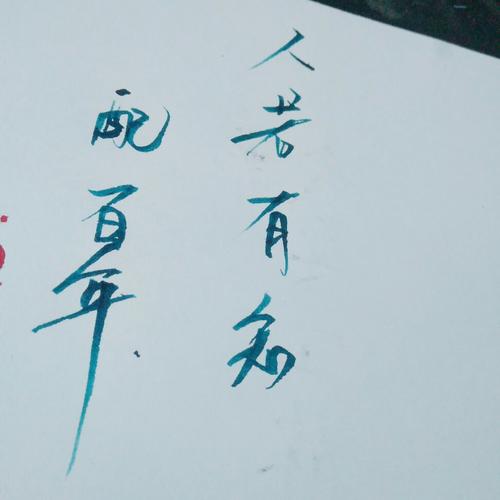 人若有知
配百年